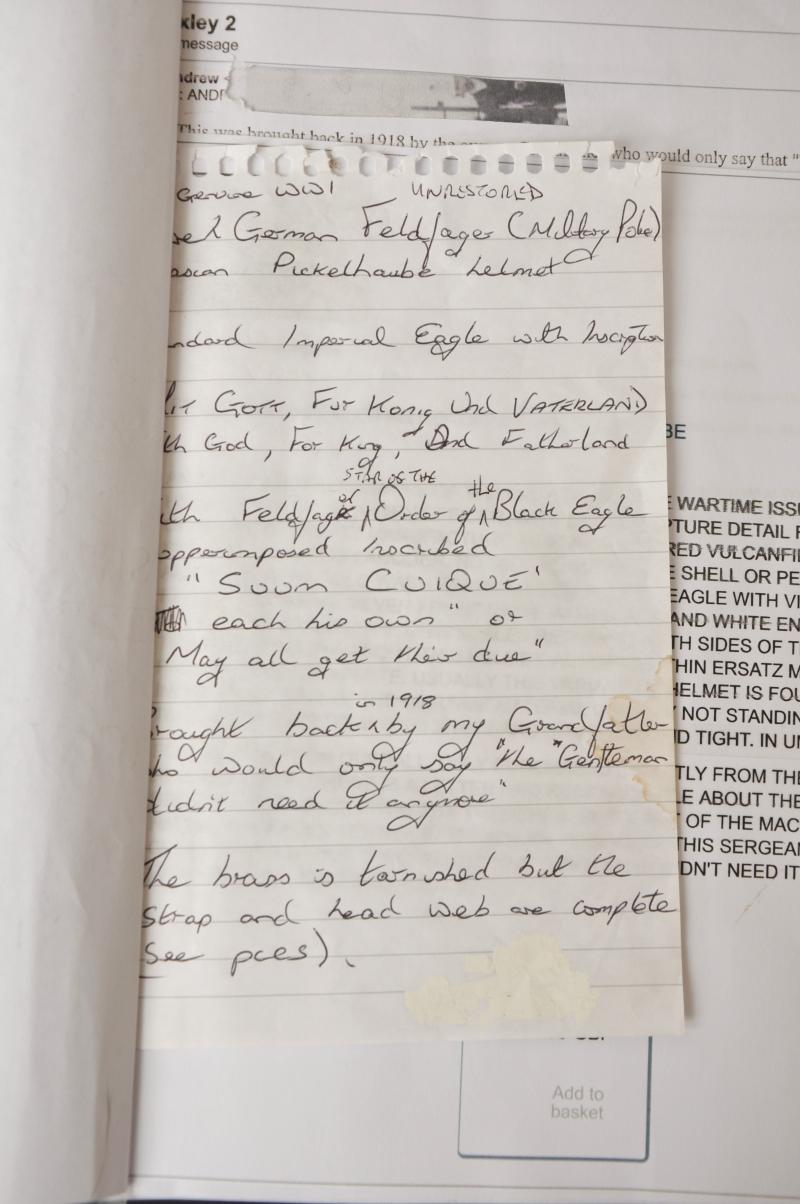 kley 2
message
ndrew
: ANDR
This was brought back in 1918 by the
who would only say that "
Genuine WW1 UNRESTORED
German Feldjager (Military Police)
Pickelhaube helmet
ndard Imperial Eagle with Inscription
it GOTT, FUR Konig Und VATERLAND
th God, For King, And Fatherland
STAR OF THE
ith Feldjager Order of the Black Eagle
opperimposed Inscribed
"SUUM CUIQUE"
each his own" or
May all get their due"
in 1918
rought back by my Grandfather
ho would only say "the "Gentleman
didn't need it anymore"
The brass is tarnished but the
strap and head web are complete
See pces).
BE
E WARTIME ISSU
PTURE DETAIL F
RED VULCANFI
E SHELL OR PE
EAGLE WITH VI
AND WHITE EN
TH SIDES OF T
THIN ERSATZ M
HELMET IS FOU
NOT STANDIN
D TIGHT. IN UN
TLY FROM THE
LE ABOUT THE
T OF THE MAC
THIS SERGEAN
DN'T NEED IT
Add to
basket